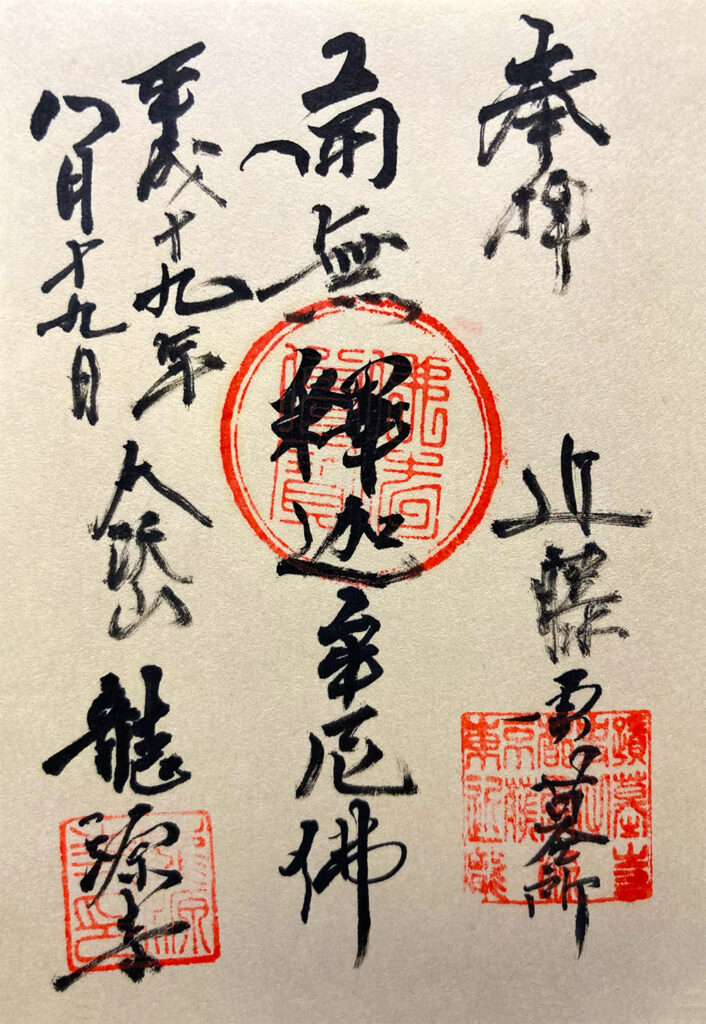 奉拝
近藤勇墓所
南無釋迦牟尼佛
平成十九年
八月十九日
大沢山
龍源寺